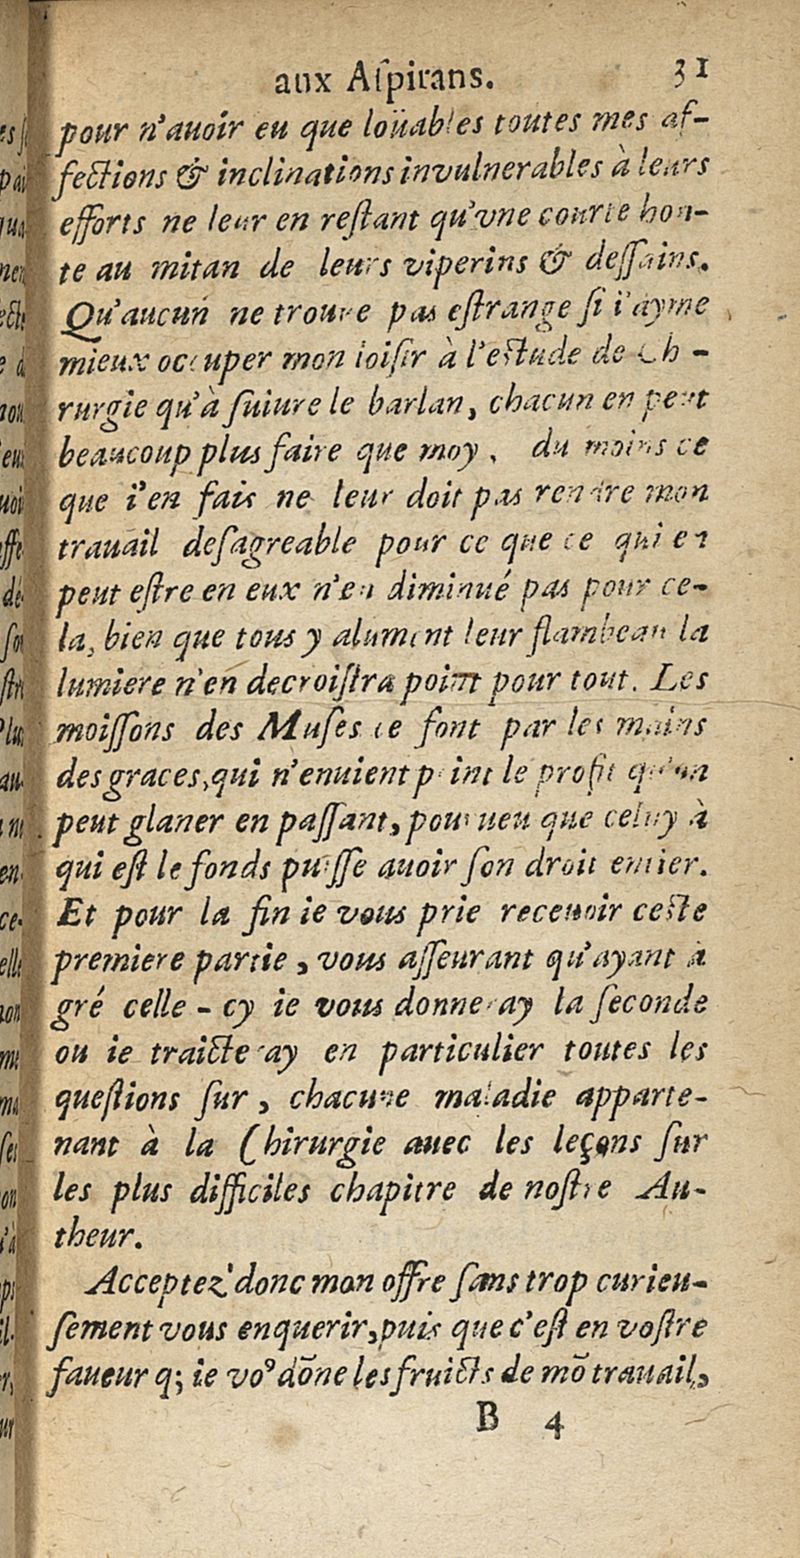 aux Aſpirans. 31
pour n'auoir eu que loüables toutes mes af-
fections & inclinations invulnerables à leurs
efforts ne leur en reſtant qu'vne courte hon-
te au mitan de leurs viperins & deſſains.
Qu'aucun ne trouve pas eſtrange ſi i'ayme
mieux occuper mon loiſir à l'eſtude de Ch -
rurgie qu'à ſuiure le barlan, chacun en peut
beaucoup plus faire que moy, du moins ce
que i'en fais ne leur doit pas rendre mon
trauail deſagreable pour ce que ce qui en
peut eſtre en eux n'en diminué pas pour ce-
la, bien que tous y alument leur flambeau la
lumiere n'en decroiſtra point pour tout. Les
moiſſons des Muſes ſe font par les mains
des graces, qui n'enuient point le profit qu'on
peut glaner en paſſant, pourueu que celuy à
qui eſt le fonds puiſſe auoir ſon droit entier.
Et pour la fin ie vous prie receuoir ceſte
premiere partie, vous aſſeurant qu'ayant à
gré celle - cy ie vous donneray la ſeconde
ou ie traicteray en particulier toutes les
queſtions ſur, chacune maladie apparte-
nant à la Chirurgie auec les leçons ſur
les plus difficiles chapitre de noſtre Au-
theur.
Acceptez donc mon offre ſans trop curieu-
ſement vous enquerir, puis que c'eſt en voſtre
faueur q; ie voꝰ dōne les fruicts de mō trauail,
B 4